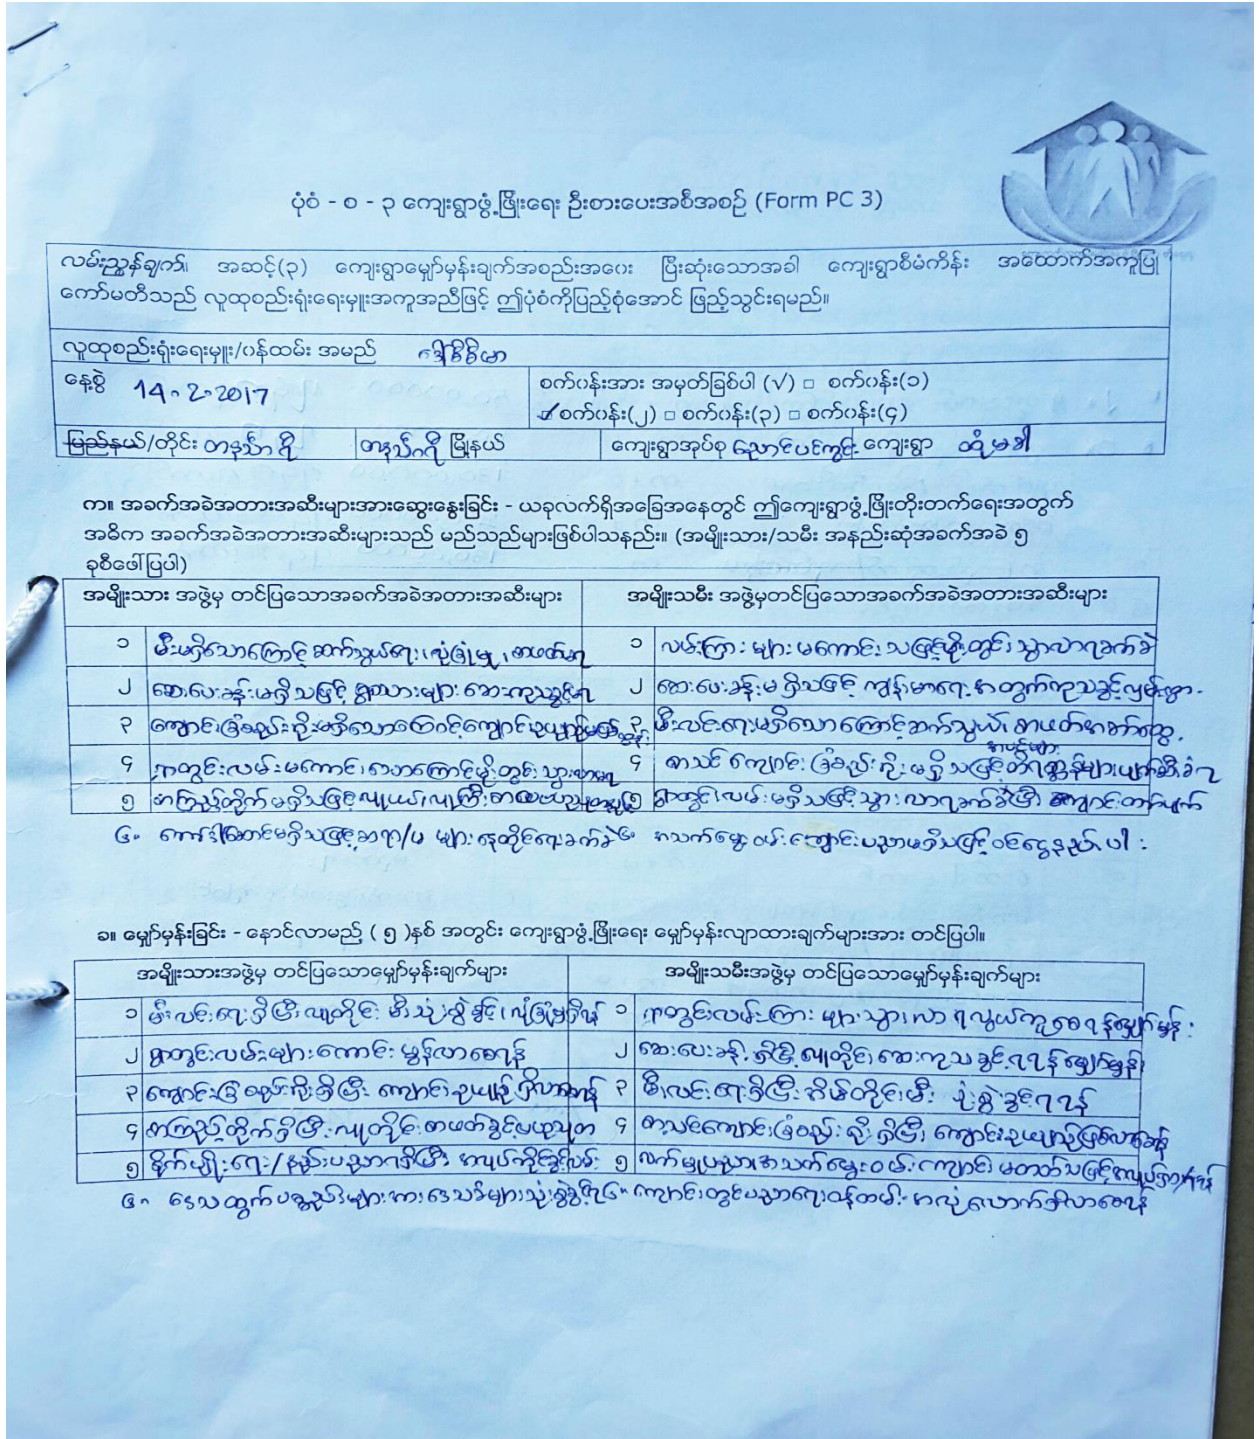 ပုံစံ - စ - ၃ ကျေးရွာဖွံ့ဖြိုးရေး ဦးစားပေးအစီအစဉ် (Form PC 3)
လမ်းညွှန်ချက်။ အဆင့်(၃) ကျေးရွာမျှော်မှန်းချက်အစည်းအဝေး ပြီးဆုံးသောအခါ ကျေးရွာစီမံကိန်း အထောက်အကူပြု
ကော်မတီသည် လူထုစည်းရုံးရေးမှူးအကူအညီဖြင့် ဤပုံစံကိုပြည့်စုံအောင် ဖြည့်သွင်းရမည်။
လူထုစည်းရုံးရေးမှူး/ဝန်ထမ်း အမည် ဒေါ်စိစိမာ
နေ့စွဲ 14.2.2017
စက်ဝန်းအား အမှတ်ခြစ်ပါ (√) □ စက်ဝန်း(၁)
☑ စက်ဝန်း(၂) □ စက်ဝန်း(၃) □ စက်ဝန်း(၄)
ပြည်နယ်/တိုင်း တနင်္သာရီ တနင်္သာရီ မြို့နယ် ကျေးရွာအုပ်စု ညောင်ပင်ကွင်း ကျေးရွာ ထုံမခါ
က။ အခက်အခဲအတားအဆီးများအားဆွေးနွေးခြင်း - ယခုလက်ရှိအခြေအနေတွင် ဤကျေးရွာဖွံ့ဖြိုးတိုးတက်ရေးအတွက်
အဓိက အခက်အခဲအတားအဆီးများသည် မည်သည်များဖြစ်ပါသနည်း။ (အမျိုးသား/သမီး အနည်းဆုံးအခက်အခဲ ၅
ခုစီဖေါ်ပြပါ)
အမျိုးသား အဖွဲ့မှ တင်ပြသောအခက်အခဲအတားအဆီးများ
အမျိုးသမီး အဖွဲ့မှတင်ပြသောအခက်အခဲအတားအဆီးများ
၁ မီးမရှိသောကြောင့် ဆက်သွယ်ရေး၊ လုံခြုံမှု၊
၁ လမ်းကြားများ မကောင်းသဖြင့်မိုးတွင်း သွားလာရခက်ခဲ
၂ ဆေးပေးခန်းမရှိသဖြင့် ရွာသားများ
၂ ဆေးပေးခန်းမရှိသဖြင့် ကျန်းမာရေးအတွက်ကုသခွင့်
၃ ကျောင်းခြံစည်းရိုးမရှိသောကြောင့်ကျောင်း
၃ မီးလင်းရေးမရှိသောကြောင့်ဆက်သွယ်၊ စာဖတ်
၄ ရွာတွင်းလမ်းမကောင်းသောကြောင့်မိုးတွင်းသွားလာရ
၄ စာသင်ကျောင်း ခြံစည်းရိုးမရှိသဖြင့်
၅ စာကြည့်တိုက်မရှိသဖြင့်လူငယ်၊ လူကြီး
၅ ရွာတွင်းလမ်းမရှိသဖြင့်သွားလာရခက်ခဲပြီး ကျောင်း
၆။ မရှိသဖြင့်ဆရာ/မ များနေထိုင်ရေးခက်ခဲ
၆။ အသက်မွေးဝမ်းကျောင်းပညာမရှိသဖြင့်ဝင်ငွေနည်းပါ
ခ။ မျှော်မှန်းခြင်း - နောင်လာမည့် ( ၅ )နှစ် အတွင်း ကျေးရွာဖွံ့ဖြိုးရေး မျှော်မှန်းလျာထားချက်များအား တင်ပြပါ။
အမျိုးသားအဖွဲ့မှ တင်ပြသောမျှော်မှန်းချက်များ
အမျိုးသမီးအဖွဲ့မှ တင်ပြသောမျှော်မှန်းချက်များ
၁ မီးလင်းရေးရှိပြီးလူတိုင်း မီးသုံးစွဲခွင့်၊ လုံခြုံမှုရှိရန်
၁ ရွာတွင်းလမ်းကြားများသွားလာရလွယ်ကူစေရန်မျှော်မှန်း
၂ ရွာတွင်းလမ်းများကောင်းမွန်လာစေရန်
၂ ဆေးပေးခန်းရှိပြီးလူတိုင်းဆေးကုသခွင့်ရရန်မျှော်မှန်း
၃ ကျောင်းခြံစည်းရိုးရှိပြီး ကျောင်းဥယျာဉ်ရှိလာစေရန်
၃ မီးလင်းရေးရှိပြီး အိမ်တိုင်းမီး သုံးစွဲခွင့်ရရန်
၄ စာကြည့်တိုက်ရှိပြီးလူတိုင်းစာဖတ်ခွင့်
၄ စာသင်ကျောင်းခြံစည်းရိုးရှိပြီး ကျောင်းဥယျာဉ်ဖြစ်လာစေရန်
၅ စိုက်ပျိုးရေး/နည်းပညာရရှိပြီး
၅ လက်မှုပညာ၊အသက်မွေးဝမ်းကျောင်း မတတ်သဖြင့်
၆။ ဒေသထွက်ပစ္စည်းများအား ဒေသခံများသုံးစွဲခွင့်ရ
၆။ ကျောင်းတွင်ပညာရေးဝန်ထမ်း အလုံအလောက်ရှိလာစေရန်